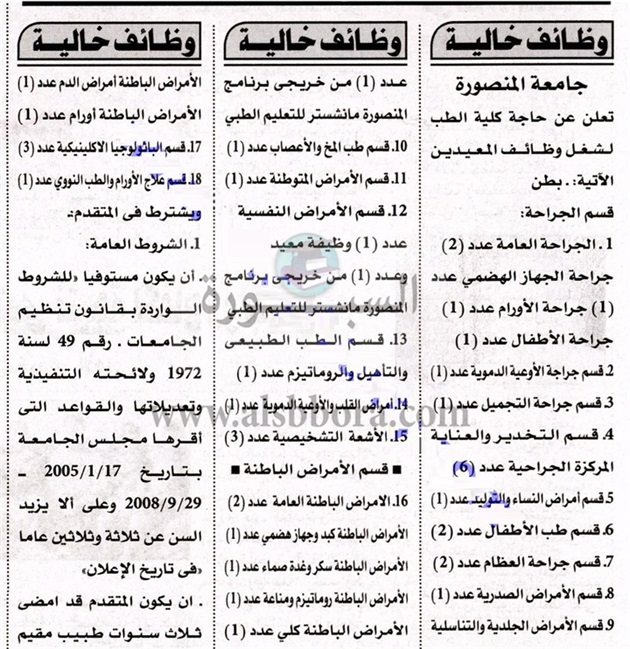 وظائف خالية
جامعة المنصورة
تعلن عن حاجة كلية الطب
لشغل وظائف المعيدين
الآتية: . بطن
قسم الجراحة:
1 . الجراحة العامة عدد (2)
جراحة الجهاز الهضمي عدد
(1) جراحة الأورام عدد (1)
جراحة الأطفال عدد (1)
2. قسم جراجة الأوعية الدموية عدد (1)
3. قسم جراحة التجميل عدد (1)
4. قسم التخدير والعناية
المركزة الجراحية عدد (6)
5. قسم أمراض النساء والتوليد عدد (1)
6. قسم طب الأطفال عدد (2)
7. قسم جراحة العظام عدد (2)
8. قسم الأمراض الصدرية عدد (1)
9. قسم الأمراض الجلدية والتناسلية
وظائف خالية
عدد (1) من خريجى برنامج
المنصورة مانشستر للتعليم الطبي
10. قسم طب المخ والأعصاب عدد (1)
11. قسم الأمراض المتوطنة عدد (1)
12. قسم الأمراض النفسية
عدد (1) وظيفة معيد
وعدد (1) من خريجى برنامج
المنصورة مانشستر للتعليم الطبي
13. قسم الطب الطبيعى
والتأهيل والروماتيزم عدد (1)
14. امراض القلب والأوعية الدموية عدد (1)
15. الأشعة التشخيصية عدد (3)
■ قسم الأمراض الباطنة ■
16. الامراض الباطنة العامة عدد (2)
الأمراض الباطنة كبد وجهاز هضمي عدد (1)
الأمراض الباطنة سكر وغدة صماء عدد (1)
الأمراض الباطنة روماتيزم ومناعة عدد (1)
الأمراض الباطنة كلي عدد (1)
وظائف خالية
الأمراض الباطنة أمراض الدم عدد (1)
الأمراض الباطنة أورام عدد (1)
17. قسم الباثولوجيا الاكلينيكية عدد (3)
18. قسم علاج الأورام والطب النووي عدد (1)
ويشترط فى المتقدم:.
1. الشروط العامة:
. أن يكون مستوفيا «للشروط
الواردة بقانون تنظيم
الجامعات . رقم 49 لسنة
1972 ولائحته التنفيذية
وتعديلاتها والقواعد التى
أقرها مجلس الجامعة
بتاريخ 2005/1/17 ـ
2008/9/29 وعلى ألا يزيد
السن عن ثلاثة وثلاثين عاما
«فى تاريخ الإعلان»
. ان يكون المتقدم قد امضى
ثلاث سنوات طبيب مقيم
السبورة
www.alsbbora.com